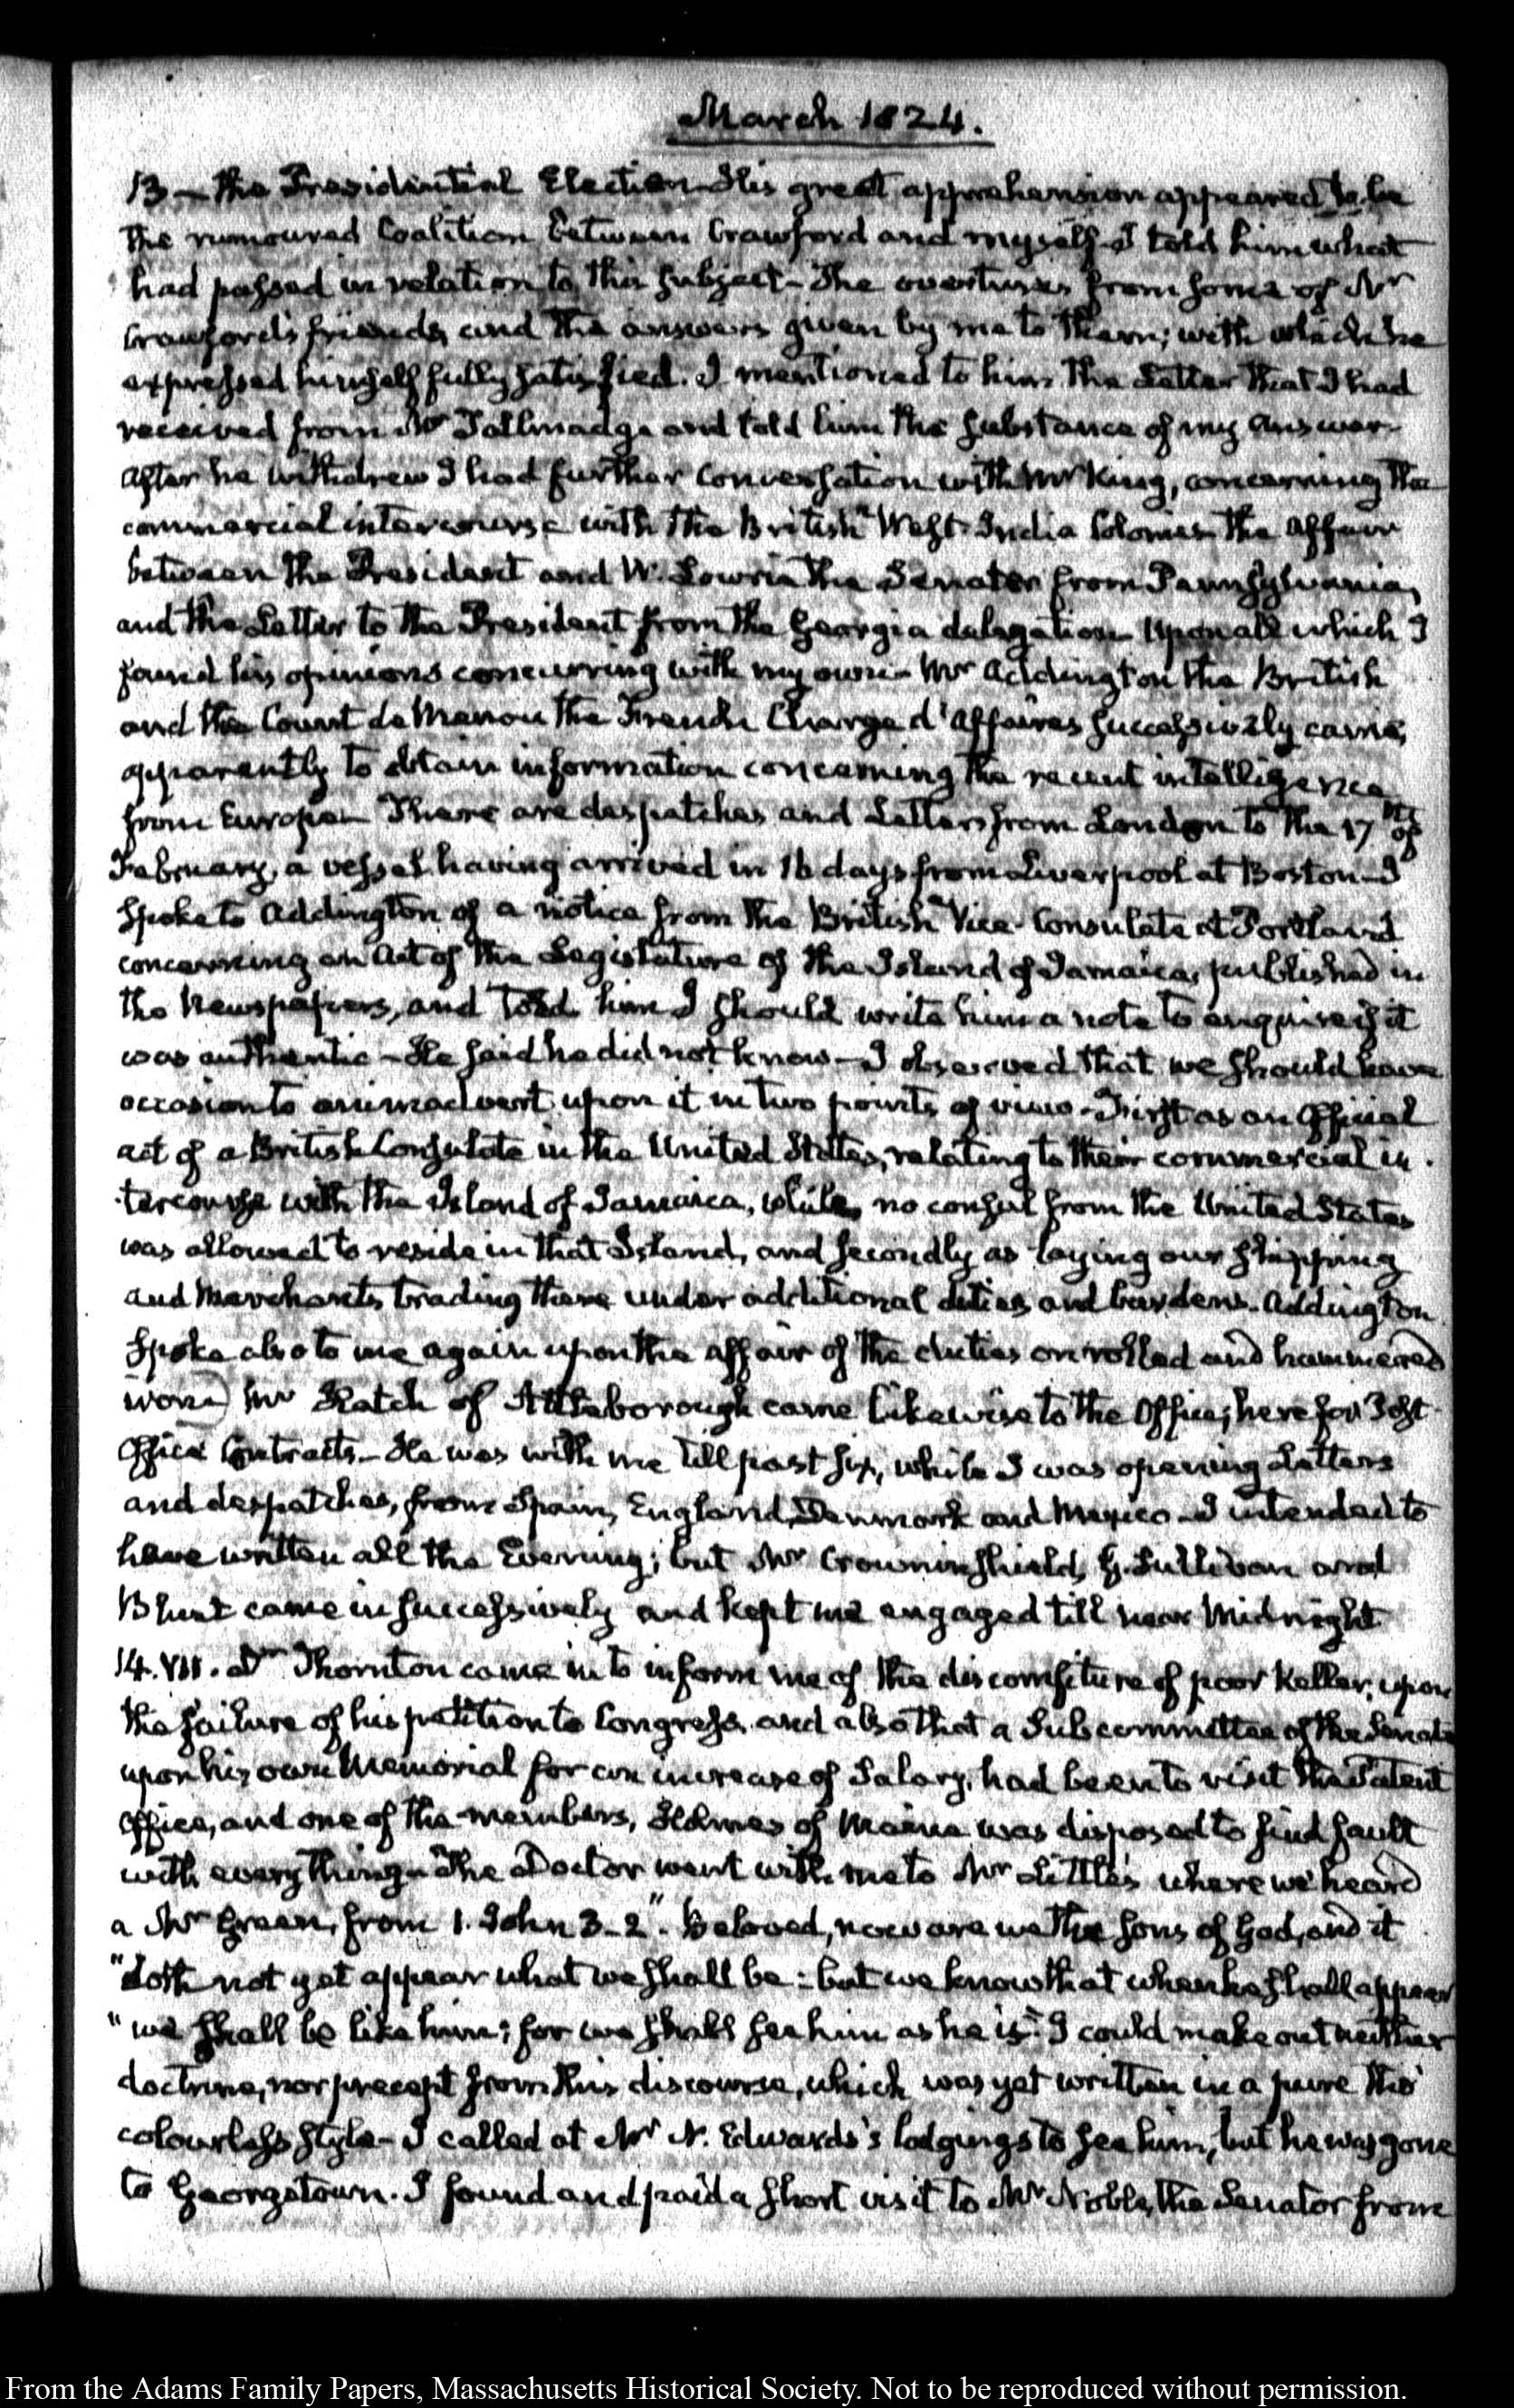 March 1824.
13 — the Presidential Election — His great apprehension appeared to be
the rumoured Coalition between Crawford and myself — I told him what
had passed in relation to this subject — The overtures from some of Mr
Crawford's friends, and the answers given by me to them; with which he
expressed himself fully satisfied. I mentioned to him the Letter that I had
received from Mr Tallmadge and told him the substance of my answer.
After he withdrew I had further conversation with Mr King, concerning the
commercial intercourse with the British West-India Colonies — the affair
between the President and W. Lowrie the Senator from Pennsylvania,
and the Letter to the President from the Georgia delegation — Upon all which I
found his opinions concurring with my own — Mr Addington the British
and the Count de Menou the French Chargé d'Affaires successively came,
apparently to obtain information concerning the recent intelligence
from Europe — There are despatches and Letters from London to the 17th of
February, a vessel having arrived in 16 days from Liverpool at Boston — I
spoke to Addington of a notice from the British Vice-Consulate at Portland
concerning an Act of the Legislature of the Island of Jamaica, published in
the Newspapers, and told him I should write him a note to enquire if it
was authentic — He said he did not know — I observed that we should have
occasion to animadvert upon it in two points of view — First as an Official
act of a British Consulate in the United States, relating to their commercial in-
tercourse with the Island of Jamaica, while no consul from the United States
was allowed to reside in that Island, and secondly as laying our shipping
and Merchants trading there under additional duties and burdens. Addington
spoke also to me again upon the affair of the duties on rolled and hammered
iron) Mr Hatch of Attleborough came likewise to the Office; here for Post
Office Contracts — He was with me till past six, while I was opening Letters
and despatches, from Spain, England, Denmark and Mexico — I intended to
have written all the Evening; but Mr Crowninshield, G. Sullivan and
Blunt came in successively and kept me engaged till near Midnight
14. VII. Dr Thornton came in to inform me of the discomfiture of poor Keller, upon
the failure of his petition to Congress, and also that a Subcommittee of the Senate
upon his own Memorial for an increase of Salary, had been to visit the Patent
Office, and one of the members, Holmes of Maine was disposed to find fault
with every thing — The Doctor went with me to Mr Little's where we heard
a Mr Green, from 1. John 3-2. "Beloved, now are we the sons of God, and it
"doth not yet appear what we shall be: but we know that when he shall appear
"we shall be like him; for we shall see him as he is." I could make out neither
doctrine, nor precept from this discourse, which was yet written in a pure tho'
colourless style — I called at Mr N. Edwards's lodgings to see him, but he was gone
to Georgetown. I found and paid a short visit to Mr Noble, the Senator from
From the Adams Family Papers, Massachusetts Historical Society. Not to be reproduced without permission.